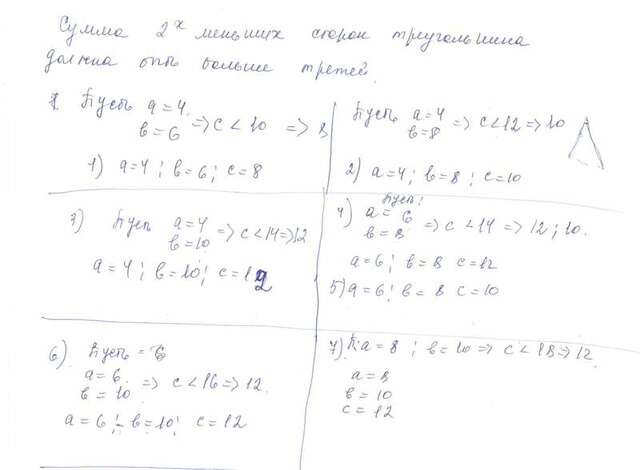 Сумма 2х меньших сторон треугольника
должна быть больше третей.
1 Пусть a = 4
b = 6 => c < 10 => 8
1) a = 4 ; b = 6 ; c = 8
Пусть a = 4
b = 8 => c < 12 => 10
2) a = 4 ; b = 8 ; c = 10
3) Пусть a = 4
b = 10 => c < 14 => 12
a = 4 ; b = 10 ; c = 12
4) Пусть
a = 6
b = 8 => c < 14 => 12 ; 10.
a = 6 ; b = 8 c = 12
5) a = 6 ; b = 8 c = 10
6) Пусть = 6
a = 6
b = 10 => c < 16 => 12.
a = 6 ; b = 10 ; c = 12
7) П: a = 8 ; b = 10 => c < 18 => 12
a = 8
b = 10
c = 12